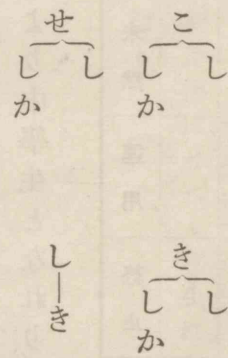 こ
し
しか
き
し
しか
せ
し
しか
し―き